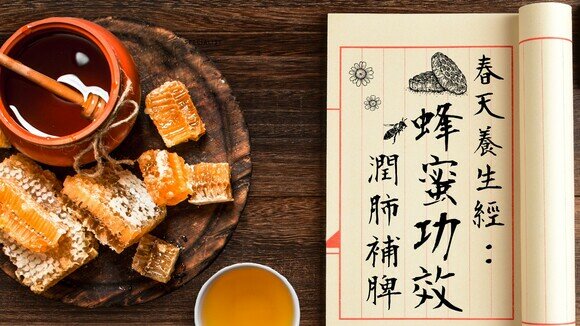 春天養生經：
蜂蜜功效
潤肺補脾